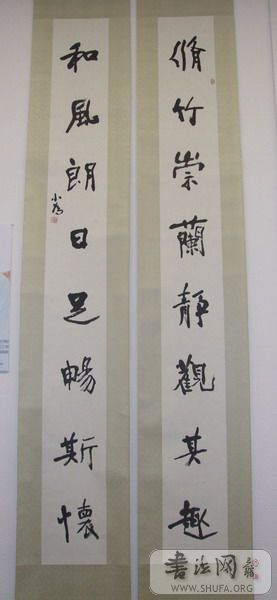 脩竹崇蘭靜觀其趣
和風朗日足暢斯懷
小石
書法网
WWW.SHUFA.ORG